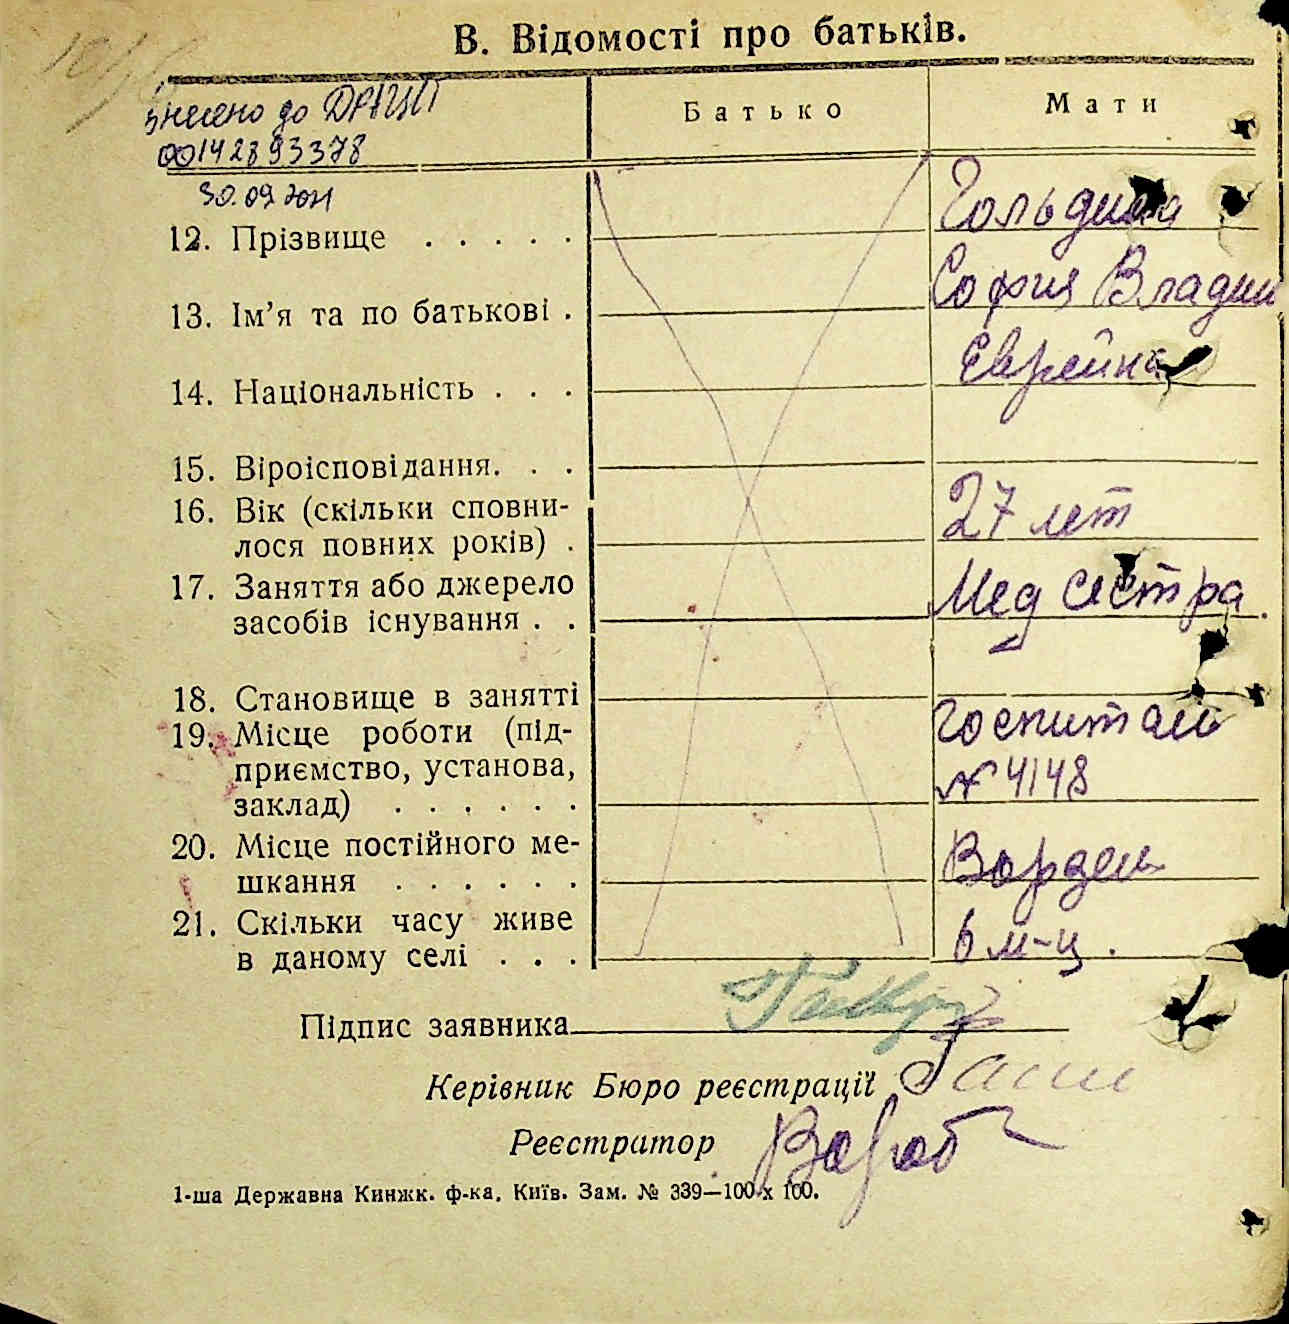 В. Відомості про батьків.
внесено до ДРАЦСГ
00142893378
30.09.2021
Батько Мати
12. Прізвище . . . . . Гольдина
13. Ім’я та по батькові . София Владим
14. Національність . . . Еврейка
15. Віроісповідання. . .
16. Вік (скільки сповни-
лося повних років) . 27 лет
17. Заняття або джерело
засобів існування . . Мед сестра.
18. Становище в занятті
19. Місце роботи (під-
приємство, установа,
заклад) . . . . . . Госпиталь
№ 4148
20. Місце постійного ме-
шкання . . . . . . Ворзель
21. Скільки часу живе
в даному селі . . . 6 м-ц.
Підпис заявника
Керівник Бюро реєстрації
Реєстратор
1-ша Державна Книжк. ф-ка. Київ. Зам. № 339—100 х 100.